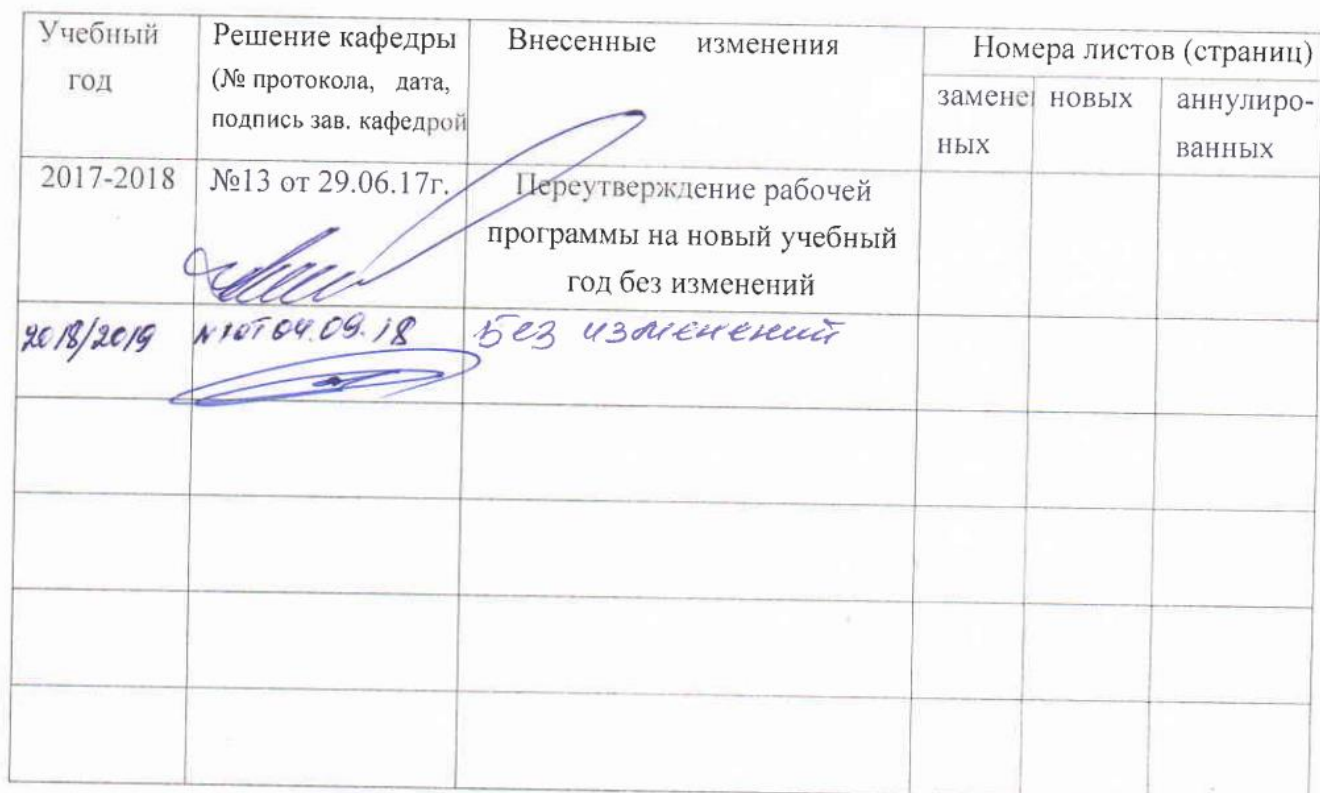 Учебный
год
Решение кафедры
(№ протокола, дата,
подпись зав. кафедрой
Внесенные изменения
Номера листов (страниц)
замене
ных
новых
аннулиро-
ванных
2017-2018
№13 от 29.06.17г.
Переутверждение рабочей
программы на новый учебный
год без изменений
2018/2019
№1 от 04.09.18
Без изменений